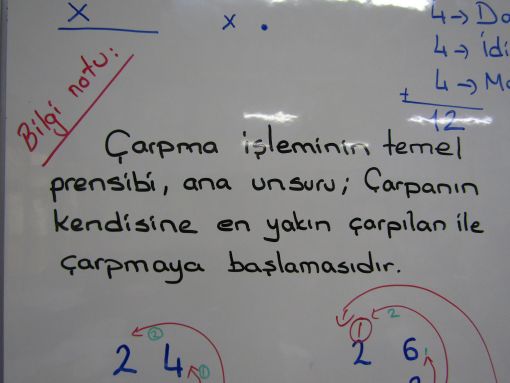 x
x .
4 → Da
4 → İdi
4 → Ma
+
12
Bilgi notu:
Çarpma işleminin temel
prensibi, ana unsuru; Çarpanın
kendisine en yakın çarpılan ile
çarpmaya başlamasıdır.
2 1
2 4
1 2
2 6